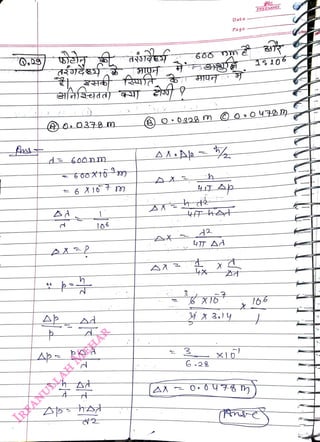 Date
Page
Q.29 फोटोन की तरंगदैर्ध्य 600 nm है और
तरंगदैर्ध्य के मापन में 1:10⁶
है। इसकी स्थिति के मापन में
अनिश्चितता क्या होगी ?
Ⓐ 0.0378 m Ⓑ 0.0328 m Ⓒ 0.0478 m
Ans—
λ = 600nm
= 600×10⁻⁹m
= 6×10⁻⁷ m
Δλ/λ = 1/10⁶
Δx = ?
∵ p = h/λ
Δp/p = Δλ/λ
Δp = pΔλ/λ
= h/λ Δλ/λ
Δp = hΔλ/λ2
Δx.Δp = ħ/2
Δx = h/4π Δp
Δx = h λ2/4π hΔλ
Δx = λ2/4π Δλ
Δx = λ/4π × λ/Δλ
= 6×10⁻⁷/4×3.14 × 10⁶/1
= 3/6.28 ×10⁻¹
Δx = 0.0478m
Ans-c
IRFANULLAH MEHAR